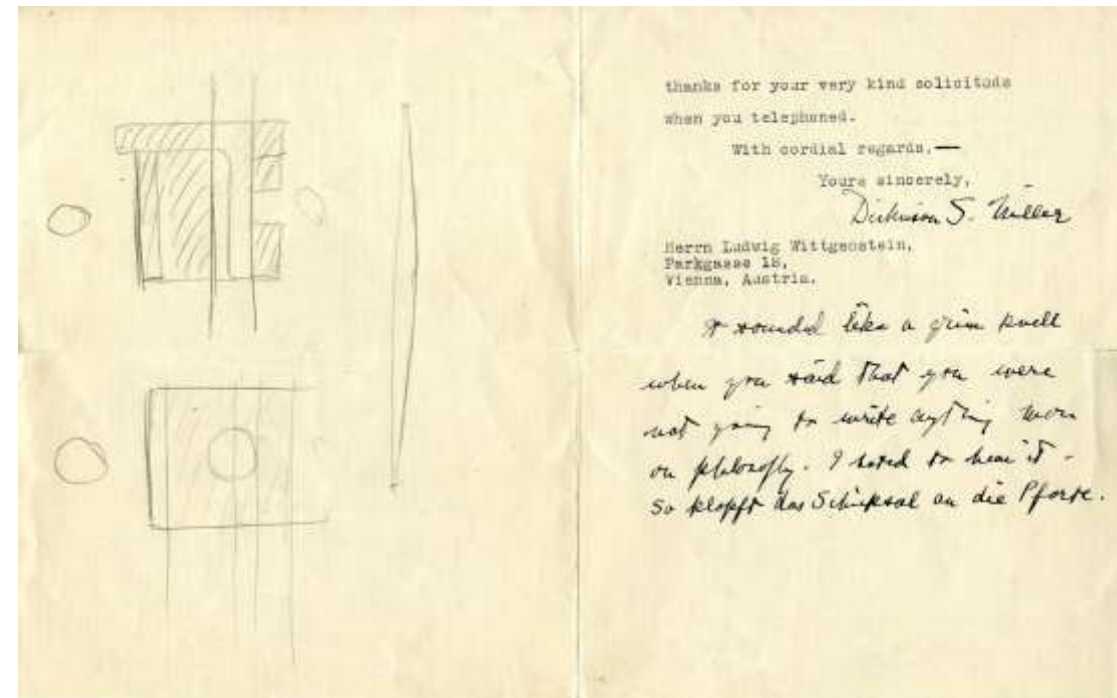 thanks for your very kind solicitude
when you telephoned.
With cordial regards,—
Yours sincerely,
Dickinson S. Miller
Herrn Ludwig Wittgenstein,
Parkgasse 18,
Vienna, Austria.
It sounded like a grim knell
when you said that you were
not going to write anything more
on philosophy. I hated to hear it -
So klopft das Schicksal an die Pforte.